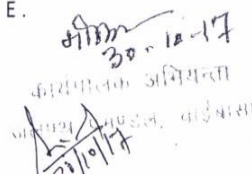 E.
30-10-17
कार्यपालक अभियन्ता
प्रमण्डल, चाईबासा
30/10/17